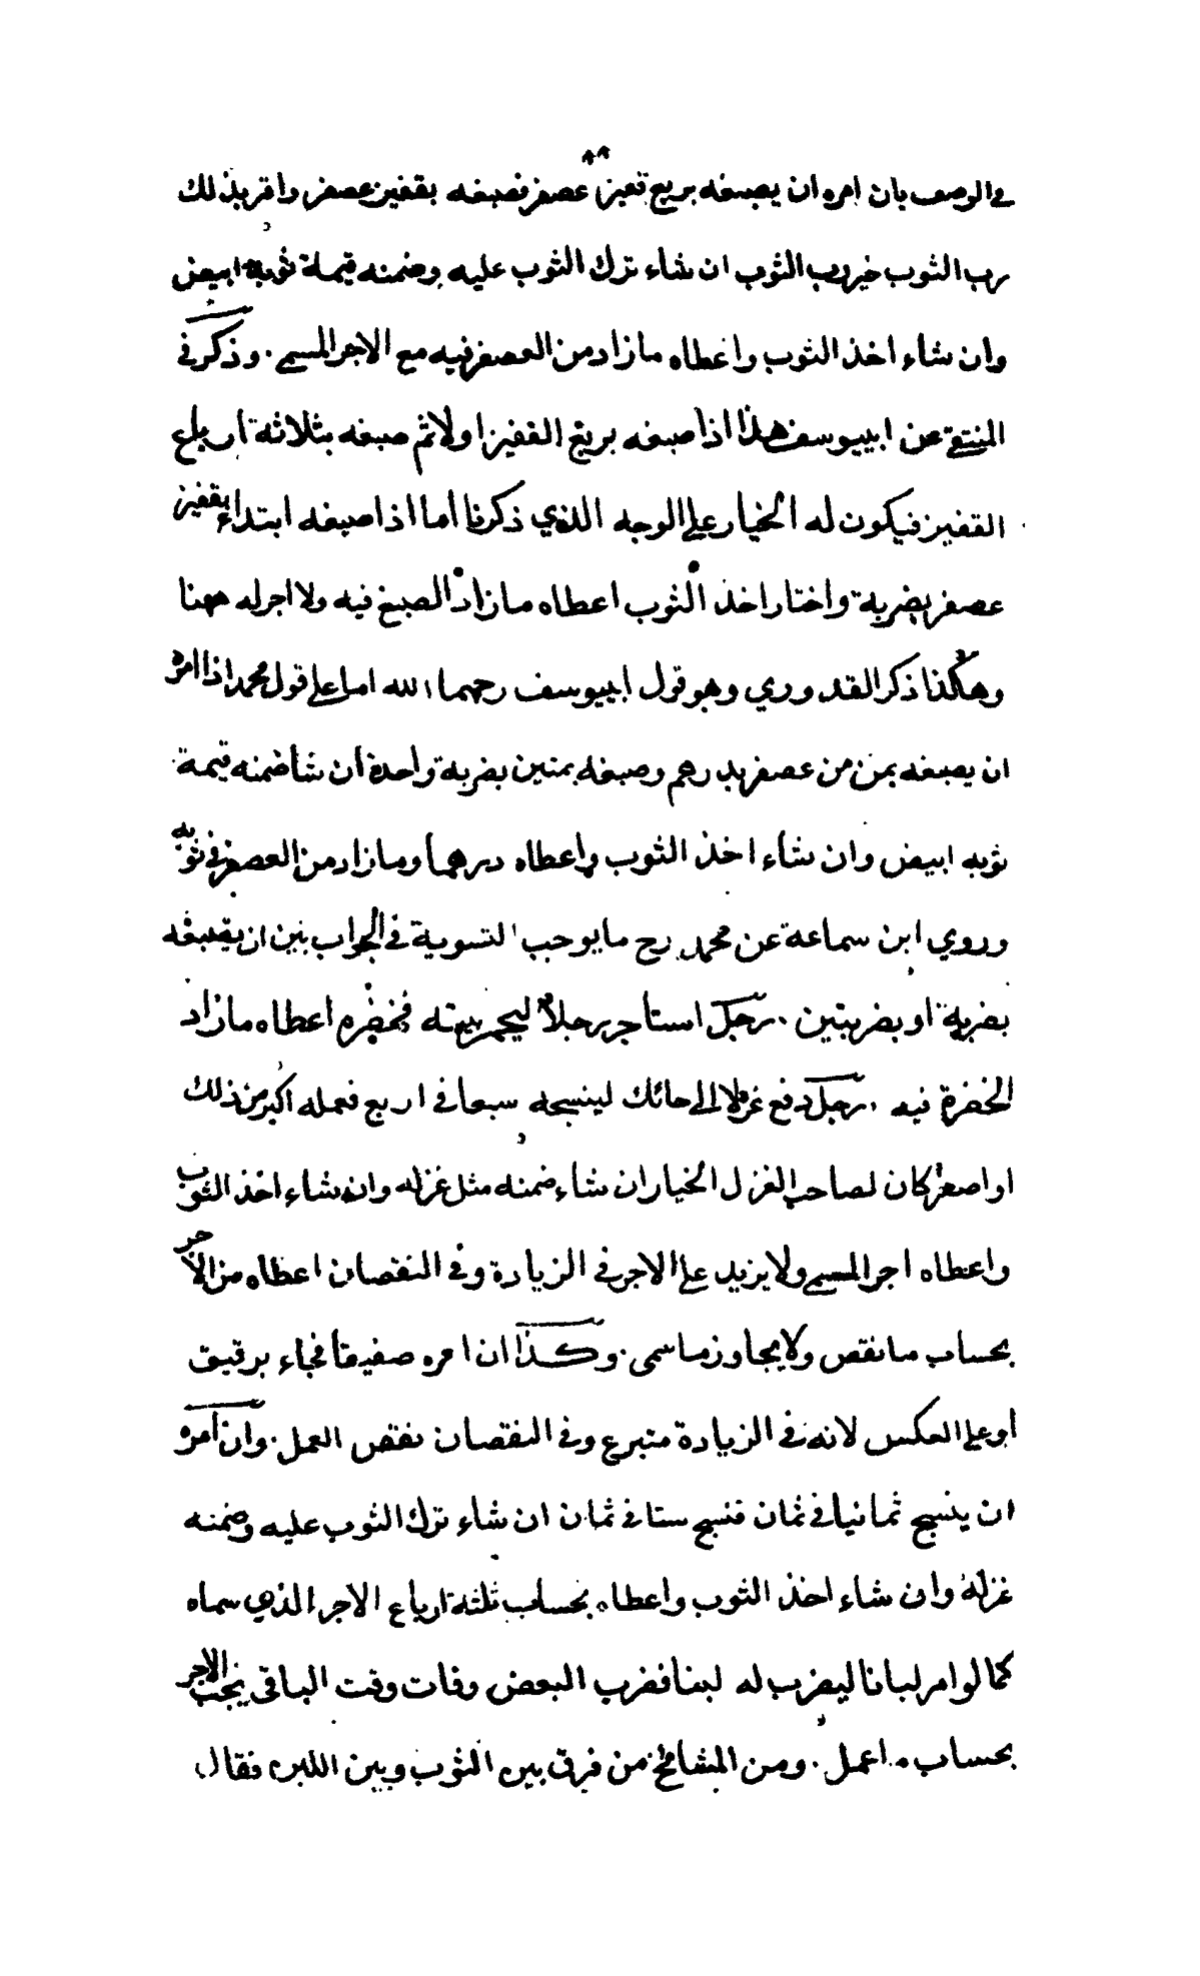 ٨٩
في الوصف بان امره ان يصبغه بربع قفيز عصفر فصبغه بقفيز عصفر واقر بذلك
رب الثوب خير رب الثوب ان شاء ترك الثوب عليه وضمنه قيمة ثوبه ابيض
وان شاء اخذ الثوب واعطاه ما زاد من العصفر فيه مع الاجر المسمى . وذكر في
المنتقى عن ابييوسف هذا اذا صبغه بربع القفيز اولا ثم صبغه بثلاثة ارباع
القفيز فيكون له الخيار على الوجه الذي ذكرنا اما اذا صبغه ابتداء بقفيز
عصفر بضربة واختار اخذ الثوب اعطاه ما زاد الصبغ فيه ولا اجر له ههنا
وهكذا ذكر القدوري وهو قول ابييوسف رحهما الله اما على قول محمد اذا امره
ان يصبغه بمن من عصفر بدرهم وصبغه بمنين بضربة واحدة ان شا ضمنه قيمة
ثوبه ابيض وان شاء اخذ الثوب واعطاه درهما وما زاد من العصفر في ثوبه
وروي ابن سماعة عن محمد رح ما يوجب التسوية في الجواب بين ان يصبغه
بضربة او بضربتين . رجل استاجر رجلا ليحمر بيته فخضره اعطاه ما زاد
الخضرة فيه . رجل دفع غزلا الى حائك لينسجه سبعا في اربع فعمله اكبر من ذلك
او اصغر كان لصاحب الغزل الخيار ان شاء ضمنه مثل غزله وان شاء اخذ الثوب
واعطاه اجر المسمى ولا يزيد على الاجر في الزيادة وفي النقصان اعطاه من الاجر
بحساب ما نقص ولا يجاوز ما سمى . وكذا ان امره صفيقا فجاء برقيق
او على العكس لانه في الزيادة متبرع وفي النقصان نقص العمل . وان امره
ان ينسج ثمانيا في ثمان فنسج ستا في ثمان ان شاء ترك الثوب عليه وضمنه
غزله وان شاء اخذ الثوب واعطاه بحساب ثلثة ارباع الاجر الذي سماه
كما لو امر لبانا ليضرب له لبنا فضرب البعض وفات وقت الباقي يجب الاجر
بحساب ما عمل . ومن المشائخ من فرق بين الثوب وبين اللبن فقال